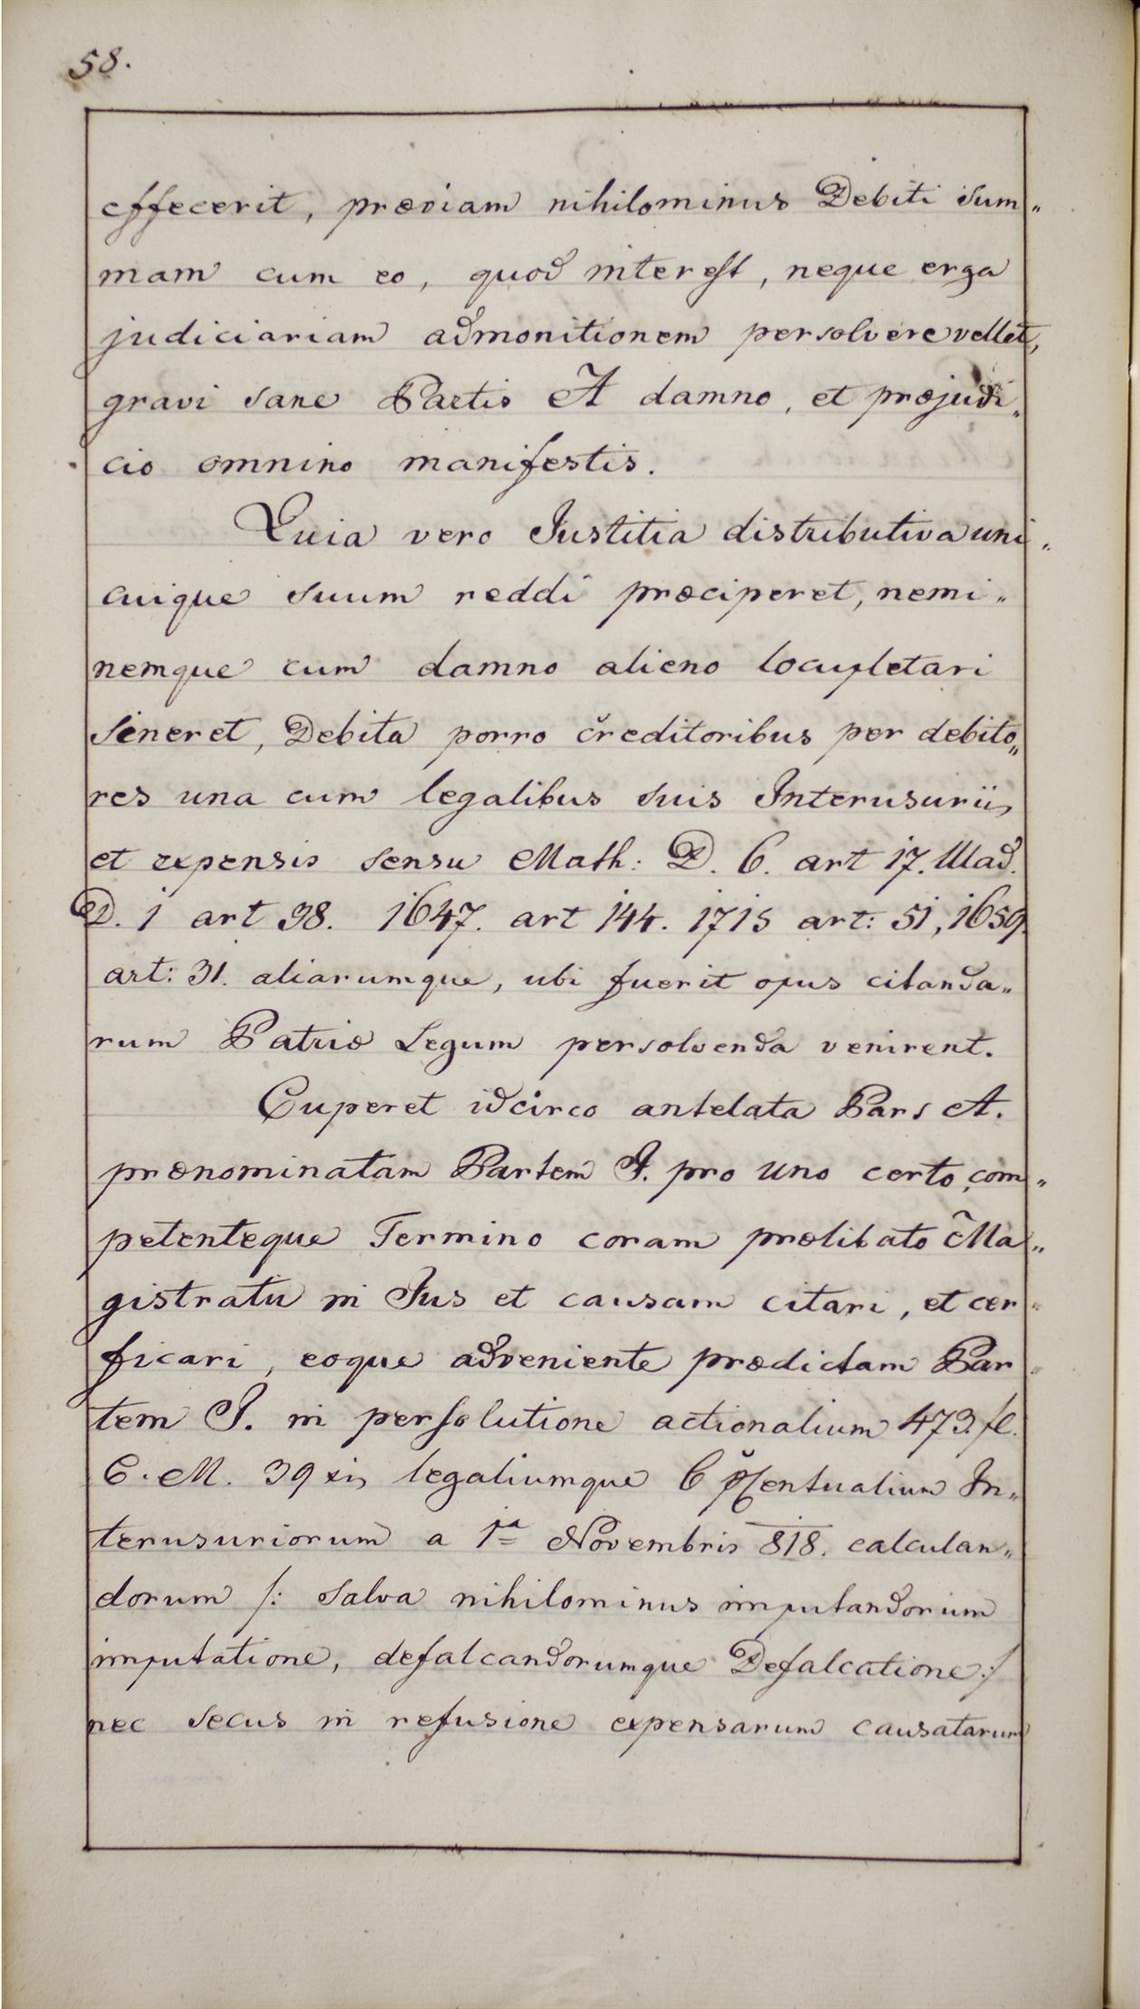 58.
effecerit, præviam nihilominus Debiti Sum„
mam cum eo, quod interest, neque erga
judiciariam admonitionem persolvere vellet,
gravi sane Partis A damno, et præjudi„
cio omnino manifestis.
Quia vero Justitia distributiva uni„
cuique suum reddi præciperet, nemi„
nemque cum damno alieno locupletari
sineret, Debita porro creditoribus per debito„
res una cum legalibus suis Interusuriis
et expensis sensu Math: D. 6. art 17. Ulad.
D. 1 art 38. 1647. art 144. 1715 art: 51, 1659
art: 31. aliarumque, ubi fuerit opus citanda„
rum Patriæ Legum persolvenda venirent.
Cuperet idcirco antelata Pars A.
prænominatam Partem I. pro uno certo, com„
petenteque Termino coram prælibato Ma„
gistratu in Jus et causam citari, et cer„
ficari, eoque adveniente prædictam Par„
tem I. in persolutione actionalium 473 fl.
C. M. 39 xis legaliumque 6 pCentualium In„
terusuriorum a 1a Novembris 818. calculan„
dorum /: salva nihilominus imputandorum
imputatione, defalcandorumque Defalcatione :/
nec secus in refusione expensarum causatarum